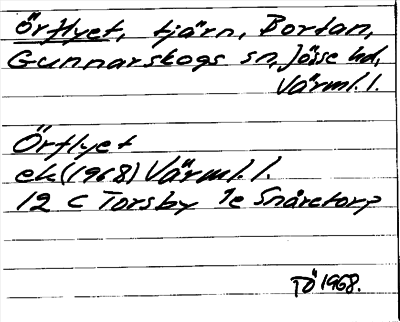 Örflyet, tjärn, Bortan,
Gunnarskogs sn, Jösse hd,
Värml. l.
Örflyet
ek (1968) Värml. l.
12 C Torsby 1e Snåretorp
TÖ 1968.